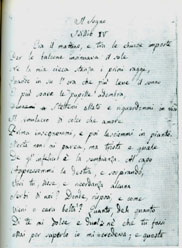 Il Sogno
Idillio IV
Era il mattino, e tra le chiuse imposte
Per lo balcone insinuava il sole
Ne la mia cieca stanza i primi raggi,
Quando in su l'ora che più leve il sonno
E più soave le pupille adombra,
Stettemi allato e riguardommi in viso
Il simulacro di colei che amore
Prima insegnommi, e poi lasciommi in pianto.
Morta non mi parea, ma trista e quale
De gl'infelici è la sembianza. Al capo
Appressommi la destra, e sospirando,
Vivi, disse, e ricordanza alcuna
Serbi di noi? Donde, risposi, e come
Vieni o cara beltà? Quanto deh quanto
Di te mi dolse e che tu